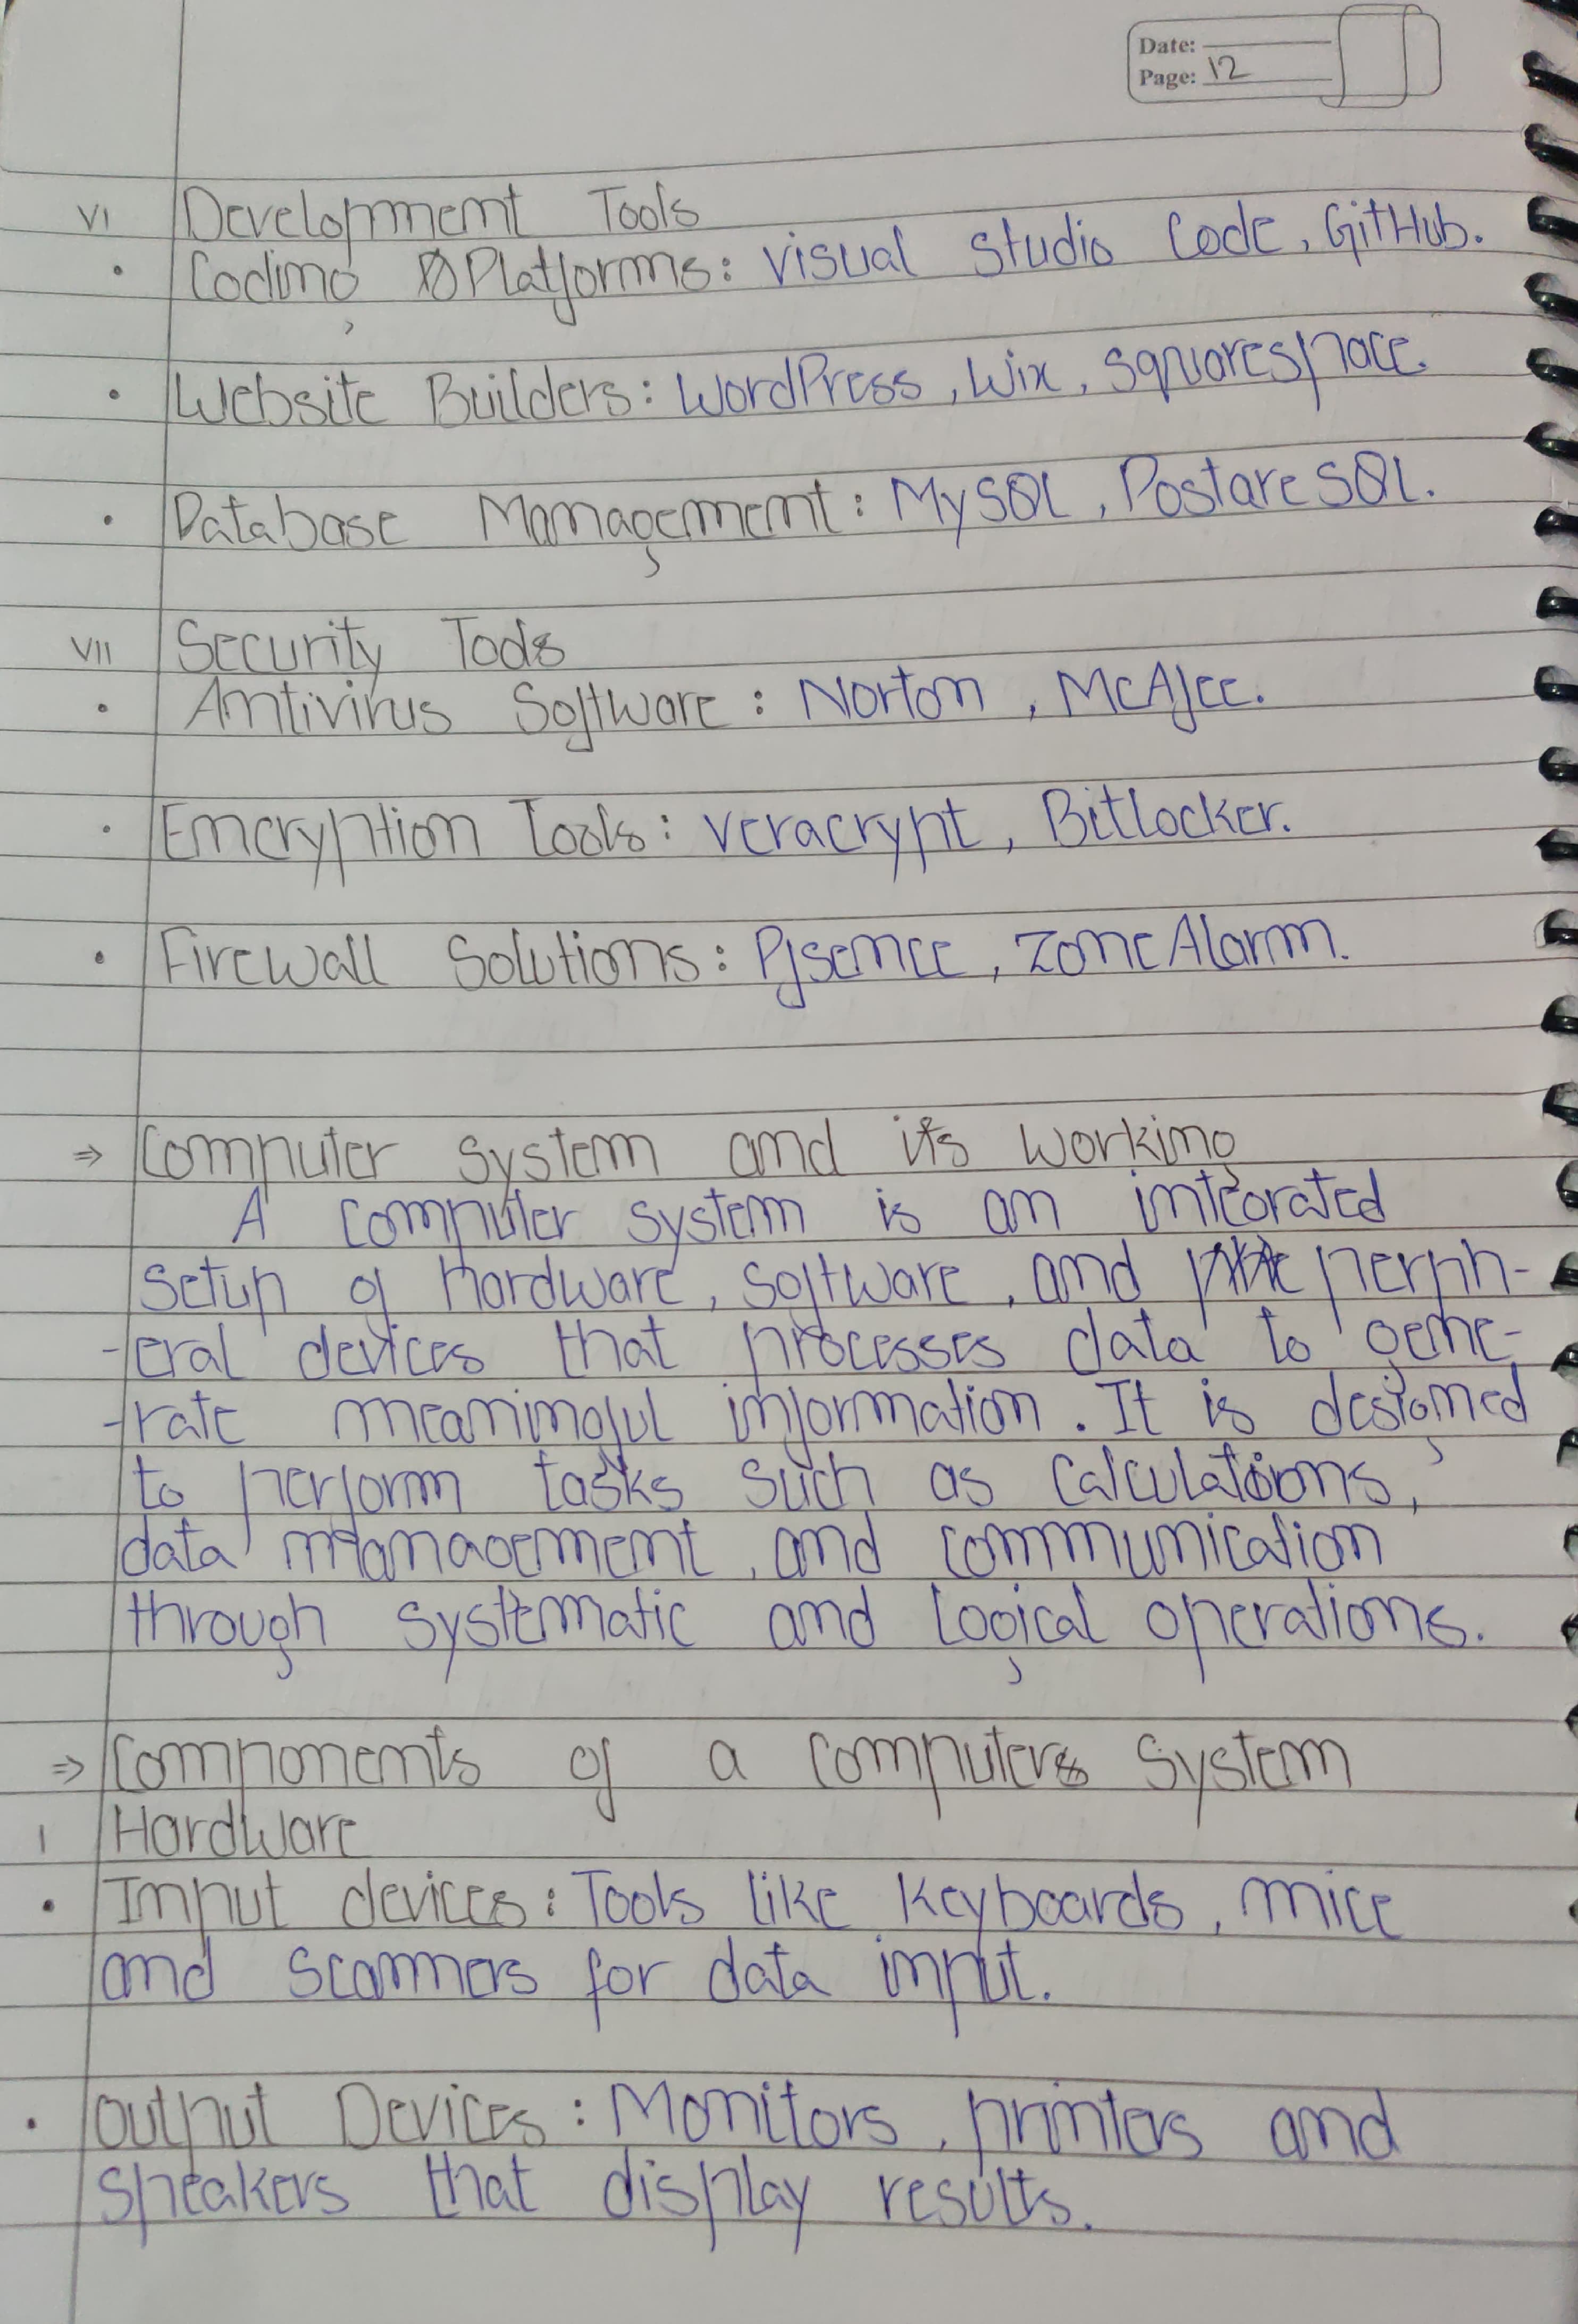 Date:
Page: 12
VI Development Tools
• Coding Platforms: Visual Studio Code, GitHub.
• Website Builders: WordPress, Wix, Squarespace.
• Database Management: MySQL, PostgreSQL.
VII Security Tools
• Antivirus Software: Norton, McAfee.
• Encryption Tools: Veracrypt, Bitlocker.
• Firewall Solutions: Pfsence, ZoneAlarm.
⇒ Computer system and its working
A computer system is an integrated
setup of hardware, software, and perph-
-eral devices that processes data to gene-
-rate meaningful information. It is designed
to perform tasks such as calculations,
data management, and communication
through systematic and logical operations.
⇒ Components of a computer system
I Hardware
• Input devices: Tools like keyboards, mice
and scanners for data input.
• Output Devices: Monitors, printers and
speakers that display results.